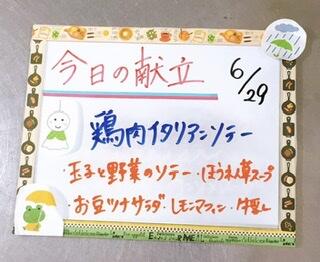 今日の献立
6/29
鶏肉イタリアンソテー
・玉子と野菜のソテー・ほうれん草スープ
・お豆ツナサラダ・レモンマフィン・牛乳